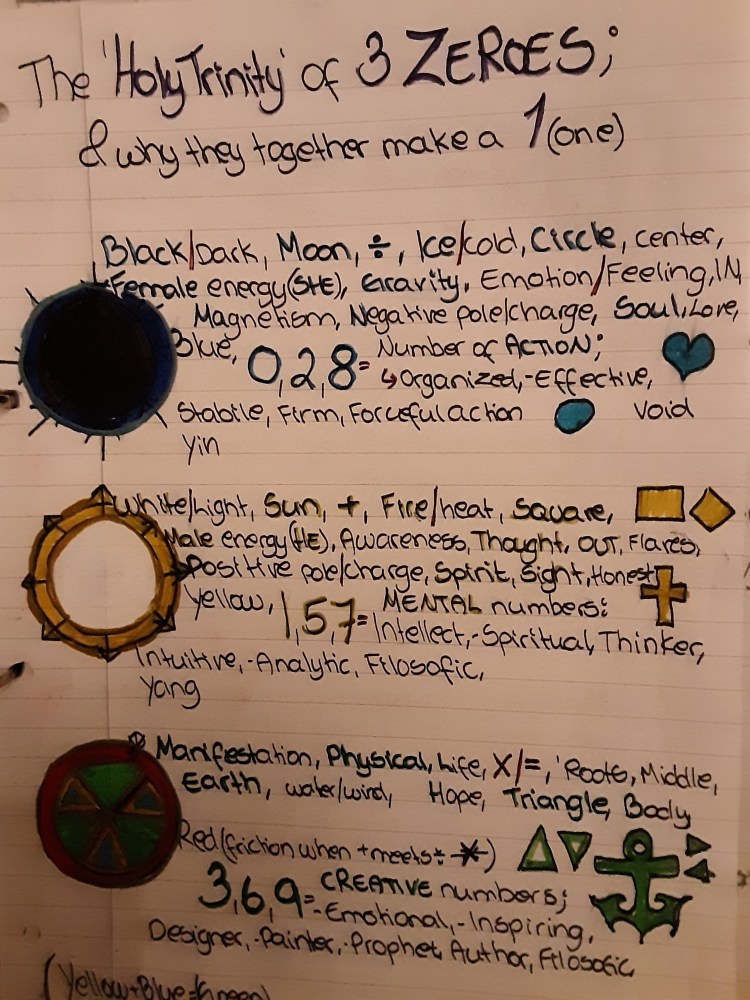 The 'Holy Trinity' of 3 ZEROES;
& why they together make a 1 (one)
Black/Dark, Moon, ÷, Ice/cold, Circle, center,
Female energy(SHE), Gravity, Emotion/Feeling, IN
Magnetism, Negative pole/charge, Soul, Love,
Blue, 0,2,8= Number of ACTION;
↳Organized,-Effective,
Stabile, Firm, Forceful action void
Yin
White/Light, Sun, +, Fire/heat, Square,
Male energy(HE), Awareness, Thought, OUT, Flares,
Positive pole/charge, Spirit, Sight, Honest
Yellow, 1,5,7= MENTAL numbers:
Intellect,-Spiritual, Thinker,
Intuitive,-Analytic, Filosofic,
Yang
Manifestation, Physical, Life, X/=, 'Roots, Middle,
Earth, water/wind, Hope, Triangle, Body
Red(friction when +meets÷ )
3,6,9= CREATIVE numbers;
-Emotional,-Inspiring,
Designer,-Painter,-Prophet, Author, Filosofic
(Yellow+Blue=Green)